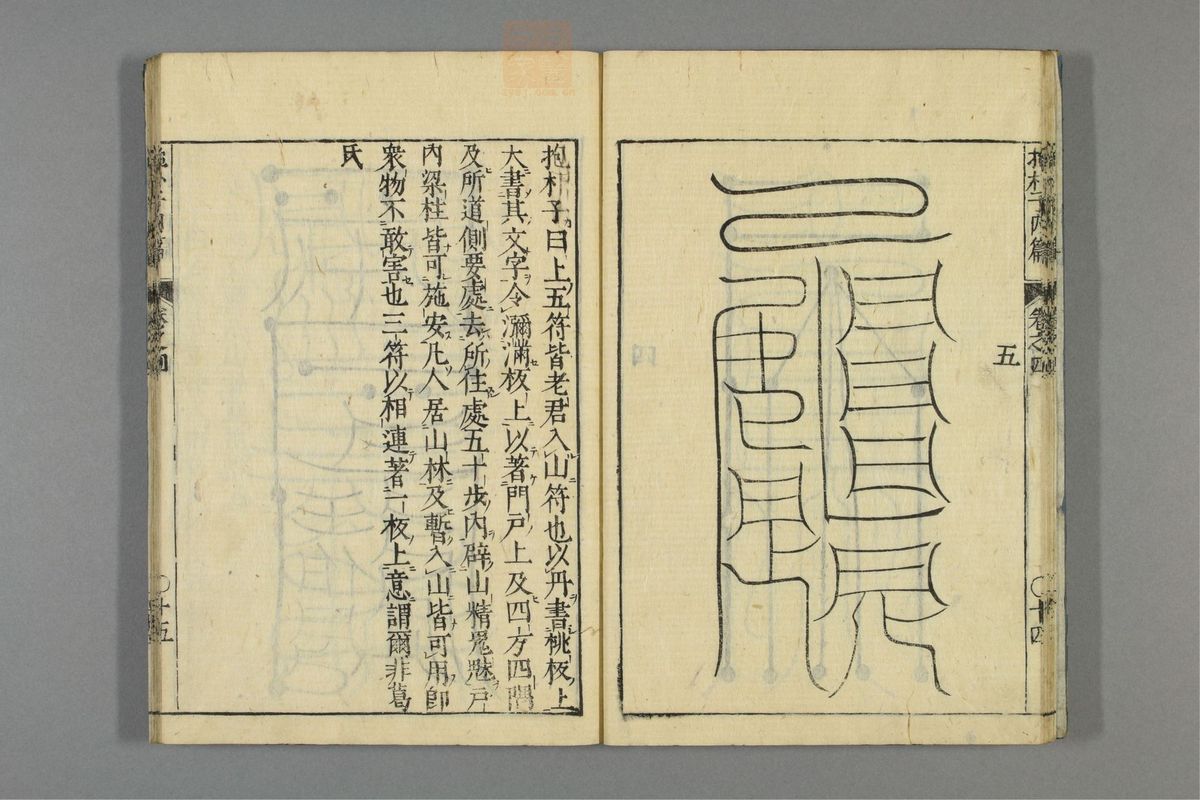 抱朴子內篇 卷之四 〇十四
五
抱朴子曰上五符皆老君入山符也以丹書桃板上
大書其文字令瀰滿板上以著門戶上及四方四隅
及所道側要處去所住處五十步內辟山精鬼魅戶
內梁柱皆可施安凡人居山林及暫入山皆可用卽
衆物不敢害也三符以相連著一板上意謂爾非葛
氏